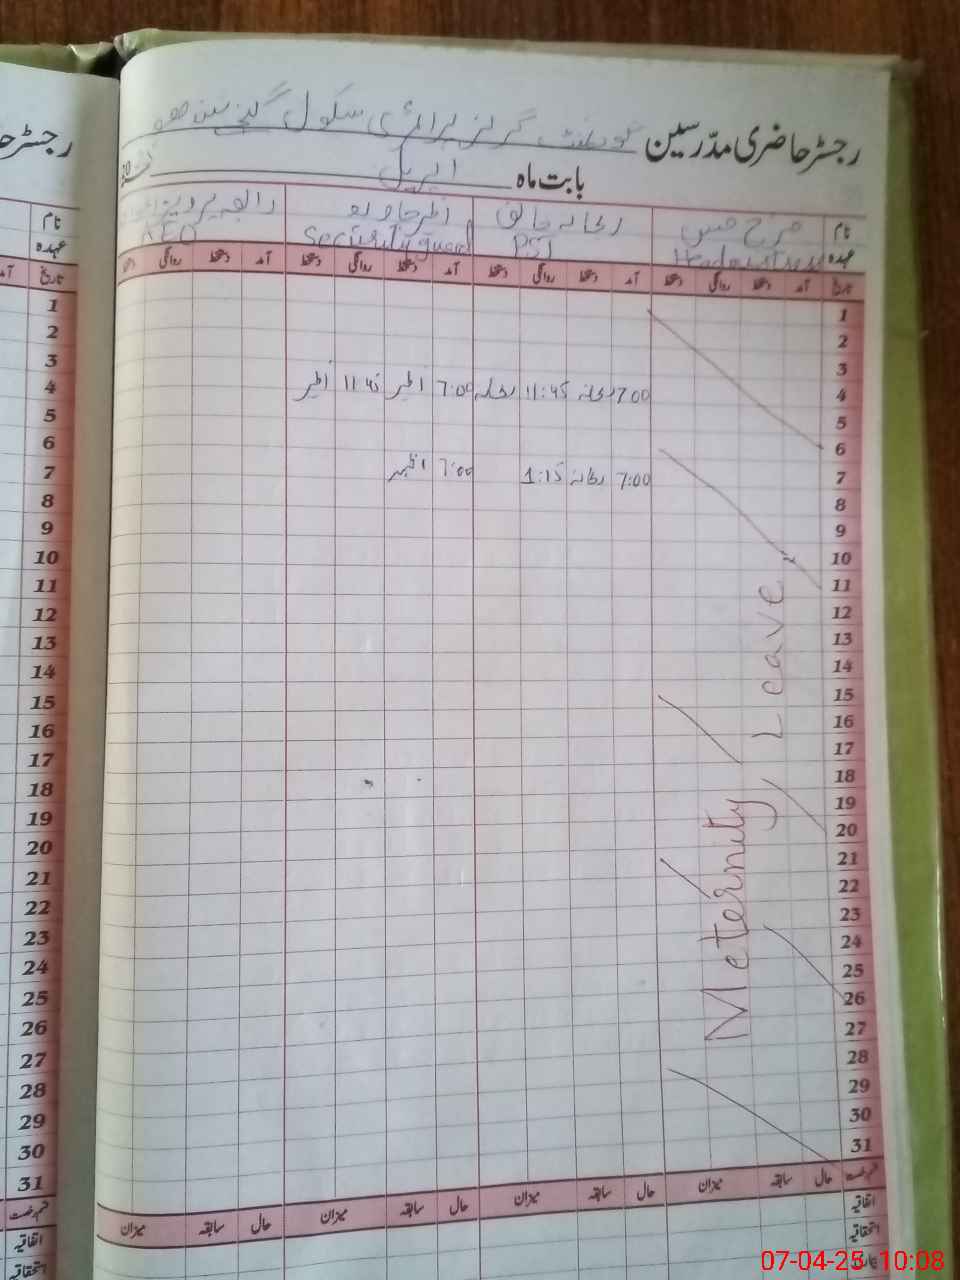 رجسٹر حاضری مدرسین گورنمنٹ گرلز پرائمری سکول
بابت ماہ اپریل
نام
رابعہ پرویز
عہدہ Security guard PST AEO
تاریخ آمد دستخط روانگی دستخط آمد دستخط روانگی دستخط آمد دستخط روانگی دستخط آمد دستخط روانگی دستخط
1
2
3
4 7:00 ریحانہ 11:45 ریحانہ 7:00 اظہر 11:45 اظہر
5
6
7 7:00 ریحانہ 1:15 7:00 اظہر
8
9
10
11
12
13
14
15
16
17
18
19
20
21
22
23
24
25
26
27
28
29
30
31
Meternity Leave
قسم رخصت حال سابقہ میزان حال سابقہ میزان حال سابقہ میزان حال سابقہ میزان
اتفاقیہ
استحقاقیہ
نام
عہدہ
تاریخ
1
2
3
4
5
6
7
8
9
10
11
12
13
14
15
16
17
18
19
20
21
22
23
24
25
26
27
28
29
30
31
قسم رخصت
اتفاقیہ
استحقاقیہ
07-04-25 10:08